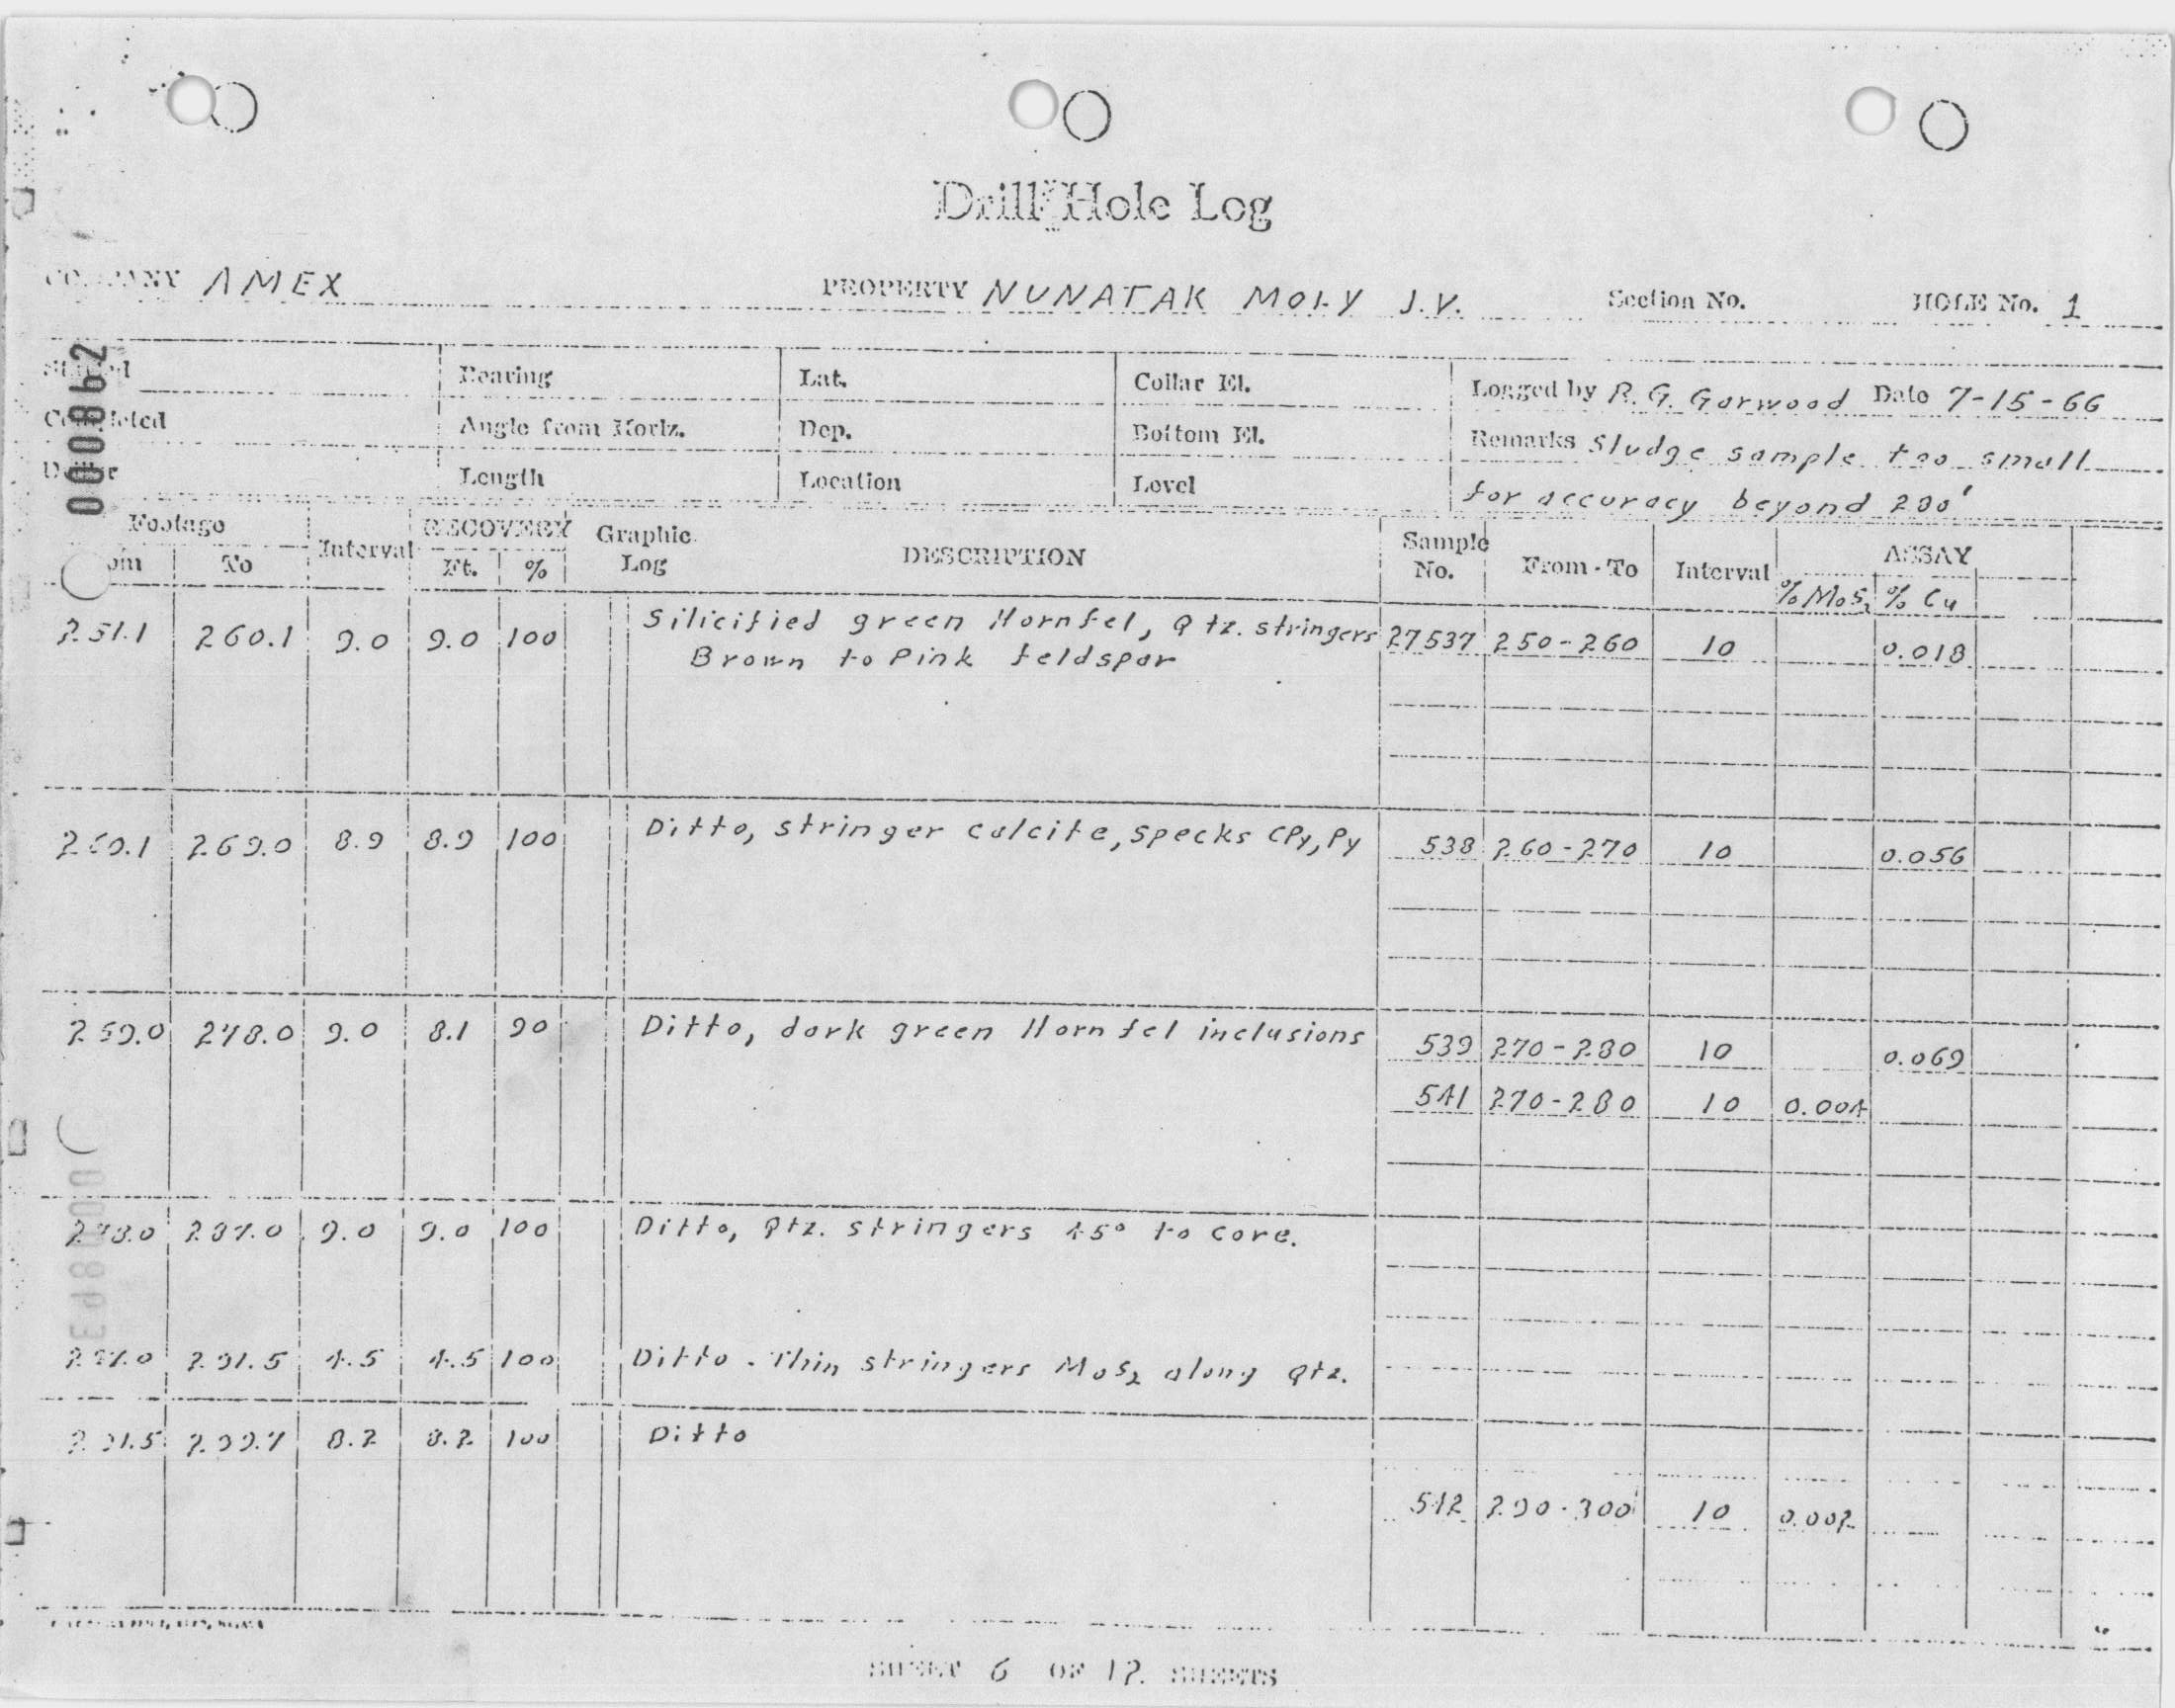 Drill Hole Log
COMPANY AMEX PROPERTY NUNATAK MOLY J.V. Section No. HOLE No. 1
Started Bearing Lat. Collar El. Logged by R. G. Garwood Date 7-15-66
Completed Angle from Horiz. Dep. Bottom El. Remarks Sludge sample too small
Length Location Level for accuracy beyond 280'
Footage Interval RECOVERY Graphic Log DESCRIPTION Sample No. From - To Interval ASSAY
om To Ft. % % MoS2 % Cu
251.1 260.1 9.0 9.0 100 Silicified green Hornfel, Qtz. stringers 27537 250-260 10 0.018
Brown to Pink feldspar
260.1 269.0 8.9 8.9 100 Ditto, stringer calcite, specks CPy, Py 538 260-270 10 0.056
269.0 278.0 9.0 8.1 90 Ditto, dark green Hornfel inclusions 539 270-280 10 0.069
541 270-280 10 0.004
278.0 287.0 9.0 9.0 100 Ditto, Qtz. stringers 45° to core.
287.0 291.5 4.5 4.5 100 Ditto. Thin stringers MoS2 along Qtz.
291.5 299.7 8.2 8.2 100 Ditto
542 290-300' 10 0.002
SHEET 6 OF 12 SHEETS